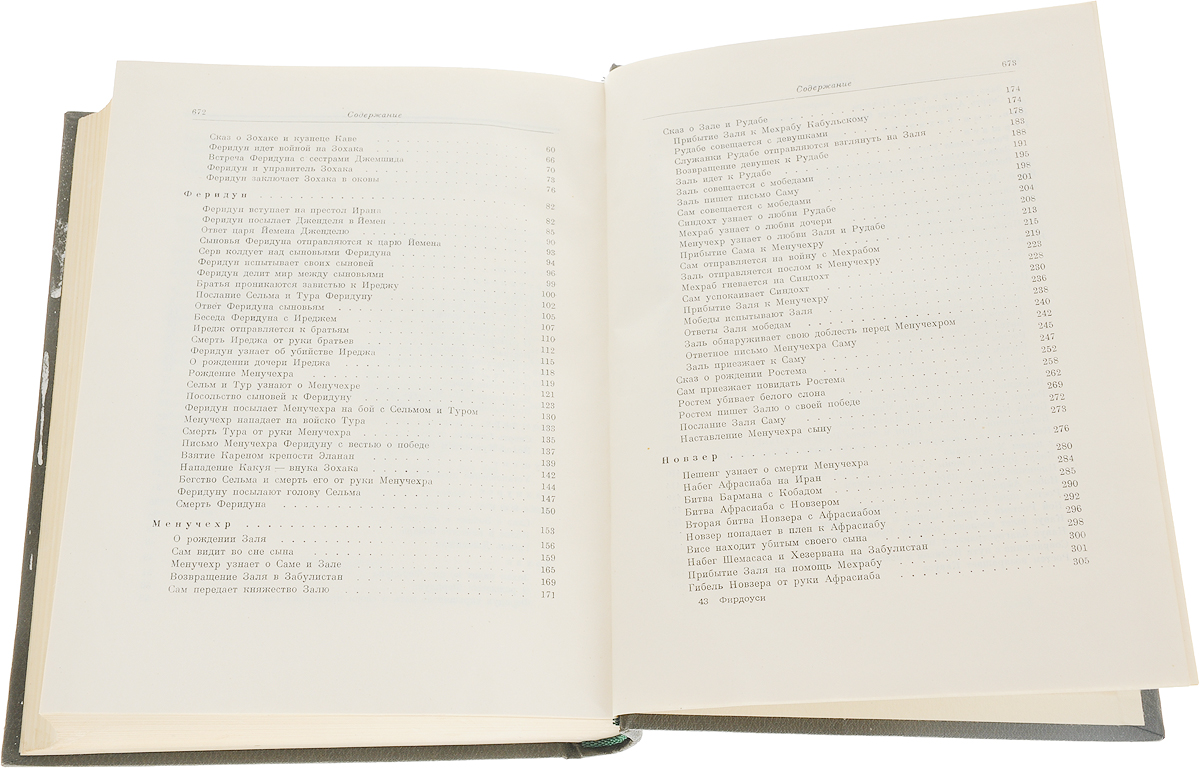 672 Содержание
Сказ о Зохаке и кузнеце Каве 60
Феридун идет войной на Зохака 66
Встреча Феридуна с сестрами Джемшида 70
Феридун и управитель Зохака 73
Феридун заключает Зохака в оковы 76
Феридун 82
Феридун вступает на престол Ирана 82
Феридун посылает Дженделя в Йемен 85
Ответ царя Йемена Джендел­ю 90
Сыновья Феридуна отправляются к царю Йемена 93
Серв колдует над сыновьями Феридуна 94
Феридун испытывает своих сыновей 96
Феридун делит мир между сыновьями 99
Братья проникаются завистью к Иреджу 100
Послание Сельма и Тура Феридуну 102
Ответ Феридуна сыновьям 105
Беседа Феридуна с Иреджем 107
Иредж отправляется к братьям 110
Смерть Иреджа от руки братьев 112
Феридун узнает об убийстве Иреджа 115
О рождении дочери Иреджа 118
Рождение Менучехра 119
Сельм и Тур узнают о Менучехре 121
Посольство сыновей к Феридуну 123
Феридун посылает Менучехра на бой с Сельмом и Туром 130
Менучехр нападает на войско Тура 133
Смерть Тура от руки Менучехра 135
Письмо Менучехра Феридуну с вестью о победе 137
Взятие Кареном крепости Эланан 139
Нападение Какуя — внука Зохака 142
Бегство Сельма и смерть его от руки Менучехра 144
Феридуну посылают голову Сельма 147
Смерть Феридуна 150
Менучехр 153
О рождении Заля 156
Сам видит во сне сына 159
Менучехр узнает о Саме и Зале 165
Возвращение Заля в Забулистан 169
Сам передает княжество Залю 171
Содержание 673
Сказ о Зале и Рудабе 174
Прибытие Заля к Мехрабу Кабульскому 174
Рудабе совещается с девушками 178
Служанки Рудабе отправляются взглянуть на Заля 183
Возвращение девушек к Рудабе 188
Заль идет к Рудабе 191
Заль совещается с мобедами 195
Заль пишет письмо Саму 198
Сам совещается с мобедами 201
Синдохт узнает о любви Рудабе 204
Мехраб узнает о любви дочери 208
Менучехр узнает о любви Заля и Рудабе 213
Прибытие Сама к Менучехру 215
Сам отправляется на войну с Мехрабом 219
Заль отправляется послом к Менучехру 223
Мехраб гневается на Синдохт 228
Сам успокаивает Синдохт 230
Прибытие Заля к Менучехру 236
Мобеды испытывают Заля 238
Ответы Заля мобедам 240
Заль обнаруживает свою доблесть перед Менучехром 242
Ответное письмо Менучехра Саму 245
Заль приезжает к Саму 247
Сказ о рождении Ростема 252
Сам приезжает повидать Ростема 258
Ростем убивает белого слона 262
Ростем пишет Залю о своей победе 269
Послание Заля Саму 272
Наставление Менучехра сыну 273
Новзер 276
Пешенг узнает о смерти Менучехра 280
Набег Афрасиаба на Иран 284
Битва Бармана с Кобадом 285
Битва Афрасиаба с Новзером 290
Вторая битва Новзера с Афрасиабом 292
Новзер попадает в плен к Афрасиабу 296
Висе находит убитым своего сына 298
Набег Шемасаса и Хезервана на Забулистан 300
Прибытие Заля на помощь Мехрабу 301
Гибель Новзера от руки Афрасиаба 305
43 Фирдоуси